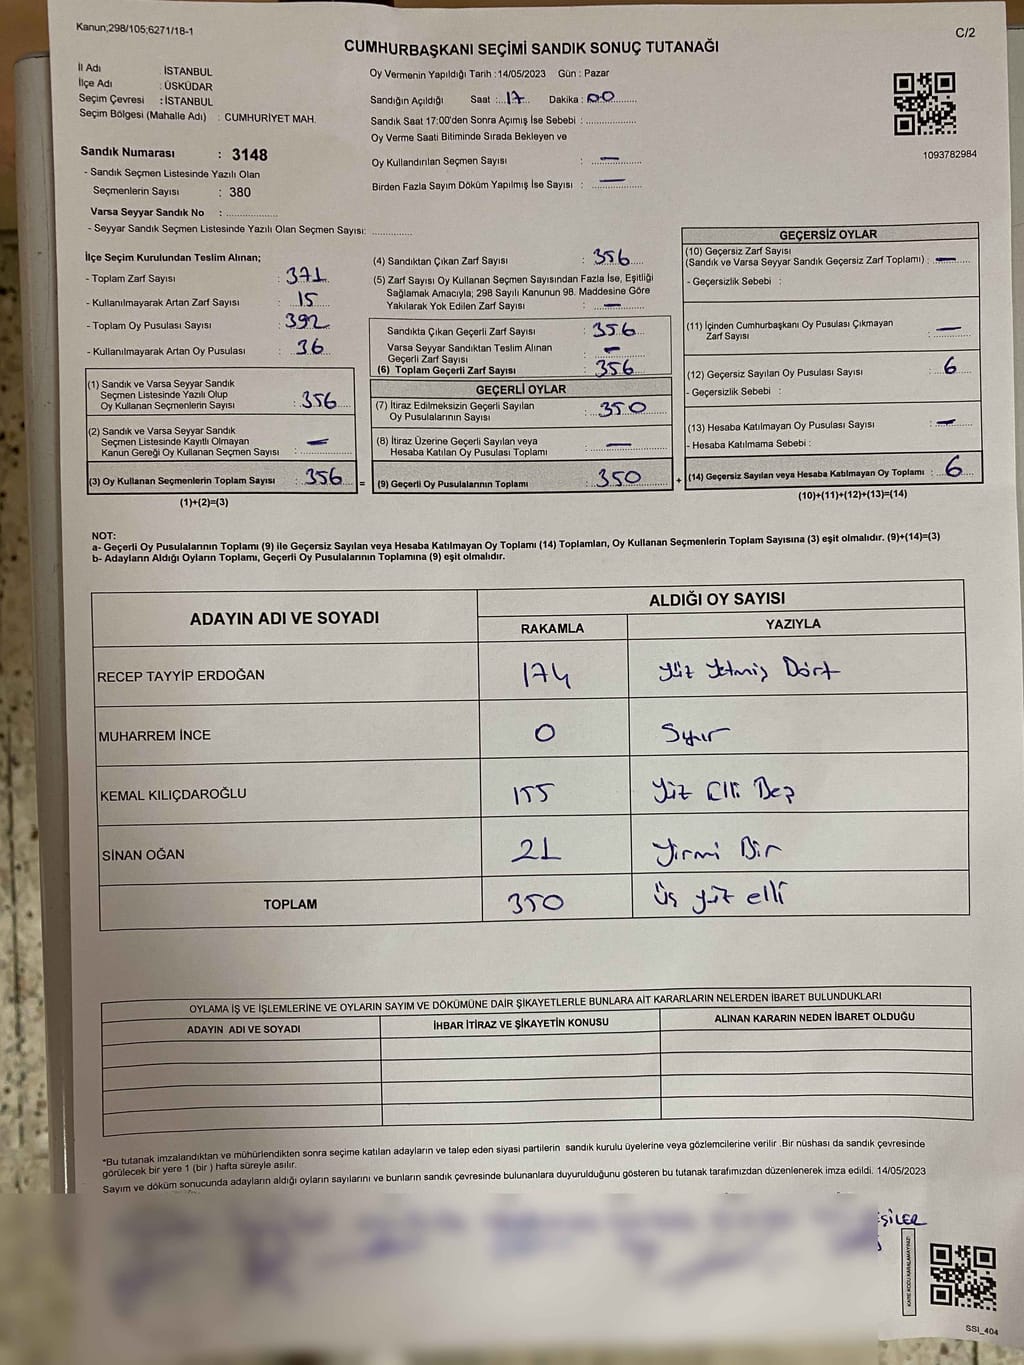 Kanun;298/105;6271/18-1
C/2
CUMHURBAŞKANI SEÇİMİ SANDIK SONUÇ TUTANAĞI
İl Adı : İSTANBUL
İlçe Adı : ÜSKÜDAR
Seçim Çevresi : İSTANBUL
Seçim Bölgesi (Mahalle Adı) : CUMHURİYET MAH.
Sandık Numarası : 3148
- Sandık Seçmen Listesinde Yazılı Olan
Seçmenlerin Sayısı : 380
Varsa Seyyar Sandık No : ..................
- Seyyar Sandık Seçmen Listesinde Yazılı Olan Seçmen Sayısı: .............
Oy Vermenin Yapıldığı Tarih :14/05/2023 Gün : Pazar
Sandığın Açıldığı Saat : 17 Dakika : 00
Sandık Saat 17:00'den Sonra Açımış İse Sebebi : ..................
Oy Verme Saati Bitiminde Sırada Bekleyen ve
Oy Kullandırılan Seçmen Sayısı : —
Birden Fazla Sayım Döküm Yapılmış İse Sayısı : —
1093782984
İlçe Seçim Kurulundan Teslim Alınan;
- Toplam Zarf Sayısı : 371
- Kullanılmayarak Artan Zarf Sayısı : 15
- Toplam Oy Pusulası Sayısı : 392
- Kullanılmayarak Artan Oy Pusulası : 36
(1) Sandık ve Varsa Seyyar Sandık
Seçmen Listesinde Yazılı Olup
Oy Kullanan Seçmenlerin Sayısı : 356
(2) Sandık ve Varsa Seyyar Sandık
Seçmen Listesinde Kayıtlı Olmayan
Kanun Gereği Oy Kullanan Seçmen Sayısı : —
(3) Oy Kullanan Seçmenlerin Toplam Sayısı : 356 =
(1)+(2)=(3)
(4) Sandıktan Çıkan Zarf Sayısı : 356
(5) Zarf Sayısı Oy Kullanan Seçmen Sayısından Fazla İse, Eşitliği
Sağlamak Amacıyla; 298 Sayılı Kanunun 98. Maddesine Göre
Yakılarak Yok Edilen Zarf Sayısı : —
Sandıkta Çıkan Geçerli Zarf Sayısı : 356
Varsa Seyyar Sandıktan Teslim Alınan
Geçerli Zarf Sayısı : —
(6) Toplam Geçerli Zarf Sayısı : 356
GEÇERLİ OYLAR
(7) İtiraz Edilmeksizin Geçerli Sayılan
Oy Pusulalarının Sayısı : 350
(8) İtiraz Üzerine Geçerli Sayılan veya
Hesaba Katılan Oy Pusulası Toplamı : —
(9) Geçerli Oy Pusulalarının Toplamı : 350 +
GEÇERSİZ OYLAR
(10) Geçersiz Zarf Sayısı
(Sandık ve Varsa Seyyar Sandık Geçersiz Zarf Toplamı) : —
- Geçersizlik Sebebi :
(11) İçinden Cumhurbaşkanı Oy Pusulası Çıkmayan
Zarf Sayısı : —
(12) Geçersiz Sayılan Oy Pusulası Sayısı : 6
- Geçersizlik Sebebi :
(13) Hesaba Katılmayan Oy Pusulası Sayısı : —
- Hesaba Katılmama Sebebi :
(14) Geçersiz Sayılan veya Hesaba Katılmayan Oy Toplamı : 6
(10)+(11)+(12)+(13)=(14)
NOT:
a- Geçerli Oy Pusulalarının Toplamı (9) ile Geçersiz Sayılan veya Hesaba Katılmayan Oy Toplamı (14) Toplamları, Oy Kullanan Seçmenlerin Toplam Sayısına (3) eşit olmalıdır. (9)+(14)=(3)
b- Adayların Aldığı Oyların Toplamı, Geçerli Oy Pusulalarının Toplamına (9) eşit olmalıdır.
ADAYIN ADI VE SOYADI
ALDIĞI OY SAYISI
RAKAMLA YAZIYLA
RECEP TAYYİP ERDOĞAN 174 Yüz Yetmiş Dört
MUHARREM İNCE 0 Sıfır
KEMAL KILIÇDAROĞLU 155 Yüz Elli Beş
SİNAN OĞAN 21 Yirmi Bir
TOPLAM 350 Üç yüz elli
OYLAMA İŞ VE İŞLEMLERİNE VE OYLARIN SAYIM VE DÖKÜMÜNE DAİR ŞİKAYETLERLE BUNLARA AİT KARARLARIN NELERDEN İBARET BULUNDUKLARI
ADAYIN ADI VE SOYADI İHBAR İTİRAZ VE ŞİKAYETİN KONUSU ALINAN KARARIN NEDEN İBARET OLDUĞU
*Bu tutanak imzalandıktan ve mühürlendikten sonra seçime katılan adayların ve talep eden siyasi partilerin sandık kurulu üyelerine veya gözlemcilerine verilir .Bir nüshası da sandık çevresinde
görülecek bir yere 1 (bir ) hafta süreyle asılır.
Sayım ve döküm sonucunda adayların aldığı oyların sayılarını ve bunların sandık çevresinde bulunanlara duyurulduğunu gösteren bu tutanak tarafımızdan düzenlenerek imza edildi. 14/05/2023
EŞİLER
KARE KODU KARALAMAYINIZ!
SSI_404